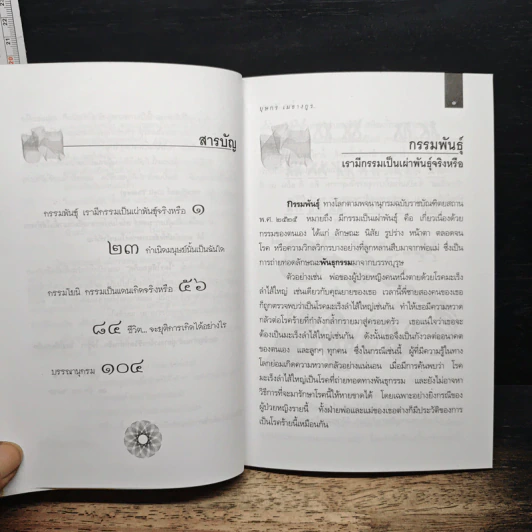 สารบัญ
กรรมพันธุ์ เรามีกรรมเป็นเผ่าพันธุ์จริงหรือ ๑
๒๓ กำเนิดมนุษย์นั้นเป็นฉันใด
กรรมโยนิ กรรมเป็นแดนเกิดจริงหรือ ๕๖
๘๔ ชีวิต... จะยุติการเกิดได้อย่างไร
บรรณานุกรม ๑๐๔
๑
กรรมพันธุ์
เรามีกรรมเป็นเผ่าพันธุ์จริงหรือ
กรรมพันธุ์ ทางโลกตามพจนานุกรมฉบับราชบัณฑิตยสถาน
พ.ศ. ๒๕๒๕ หมายถึง มีกรรมเป็นเผ่าพันธุ์ คือ เกี่ยวเนื่องด้วย
กรรมของตนเอง ได้แก่ ลักษณะ นิสัย รูปร่าง หน้าตา ตลอดจน
โรค หรือความวิกลวิการบางอย่างที่ลูกหลานสืบมาจากพ่อแม่ ซึ่งเป็น
การถ่ายทอดลักษณะพันธุกรรมมาจากบรรพบุรุษ
ตัวอย่างเช่น พ่อของผู้ป่วยหญิงคนหนึ่งตายด้วยโรคมะเร็ง
ลำไส้ใหญ่ เช่นเดียวกับคุณยายของเธอ เวลานี้พี่ชายสองคนของเธอ
ก็ถูกตรวจพบว่าเป็นโรคมะเร็งลำไส้ใหญ่เช่นกัน ทำให้เธอมีความหวาด
กลัวต่อโรคร้ายที่กำลังกล้ำกรายมาสู่ครอบครัว เธอแน่ใจว่าเธอจะ
ต้องเป็นมะเร็งลำไส้ใหญ่เช่นกัน ดังนั้นเธอจึงเป็นกังวลต่ออนาคต
ของตนเอง และลูกๆ ทุกคน ซึ่งในกรณีเช่นนี้ ผู้ที่มีความรู้ในทาง
โลกย่อมเกิดความหวาดกลัวอย่างแน่นอน เมื่อมีการค้นพบว่า โรค
มะเร็งลำไส้ใหญ่เป็นโรคที่ถ่ายทอดทางพันธุกรรม และยังไม่อาจหา
วิธีการที่จะมารักษาโรคนี้ให้หายขาดได้ โดยเฉพาะอย่างยิ่งกรณีของ
ผู้ป่วยหญิงรายนี้ ทั้งฝ่ายพ่อและแม่ของเธอต่างก็มีประวัติของการ
เป็นโรคร้ายนี้เหมือนกัน